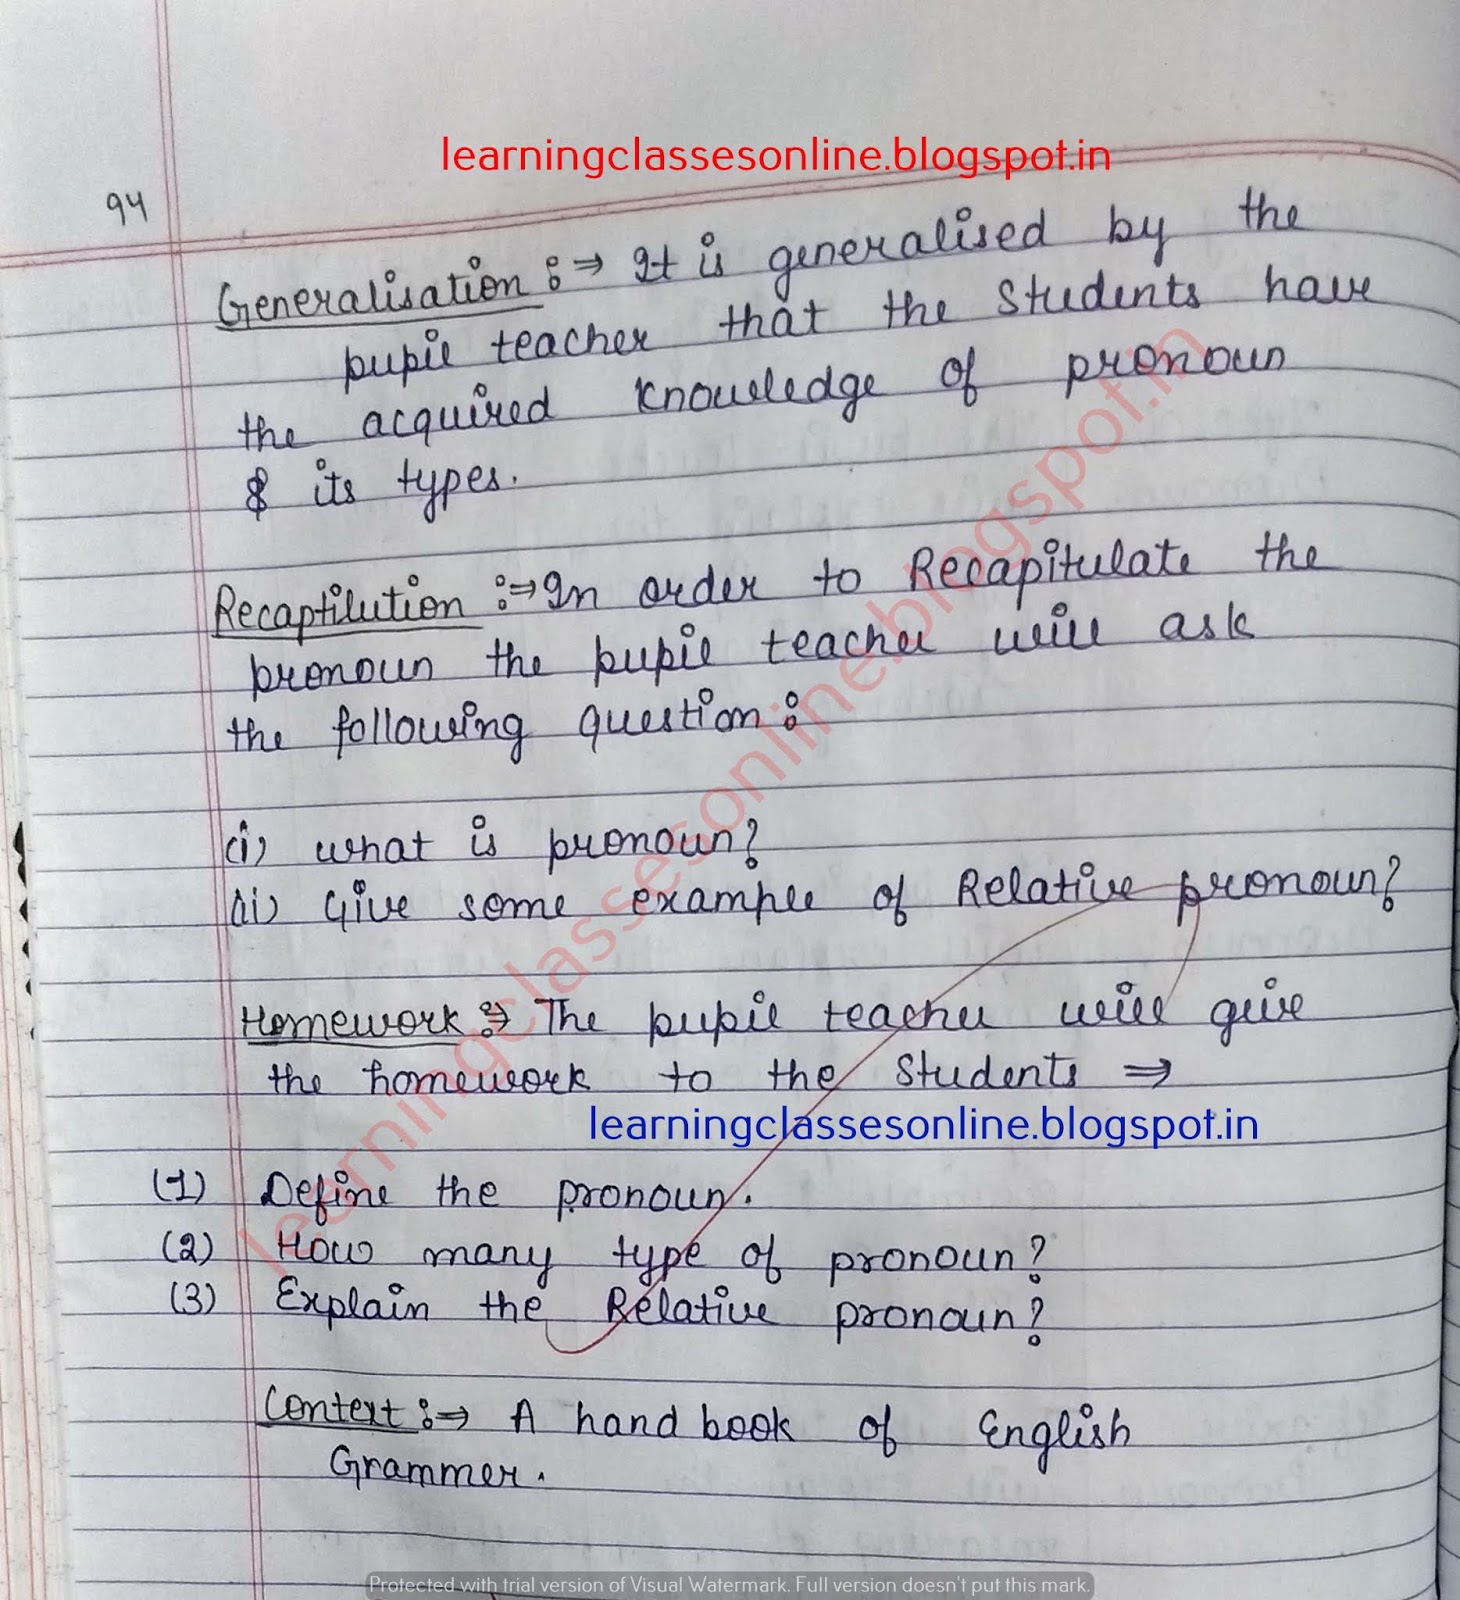 learningclassesonline.blogspot.in
94
Generalisation :⇒ It is generalised by the
pupil teacher that the students have
the acquired knowledge of pronoun
& its types.
Recaptilution :⇒ In order to Recapitulate the
pronoun the pupil teacher will ask
the following question :
(i) what is pronoun?
(ii) Give some example of Relative pronoun?
Homework :⇒ The pupil teacher will give
the homework to the students ⇒
learningclassesonline.blogspot.in
(1) Define the pronoun.
(2) How many type of pronoun?
(3) Explain the Relative pronoun?
Context :⇒ A hand book of English
Grammer.
learningclassesonline.blogspot.in
Protected with trial version of Visual Watermark. Full version doesn't put this mark.